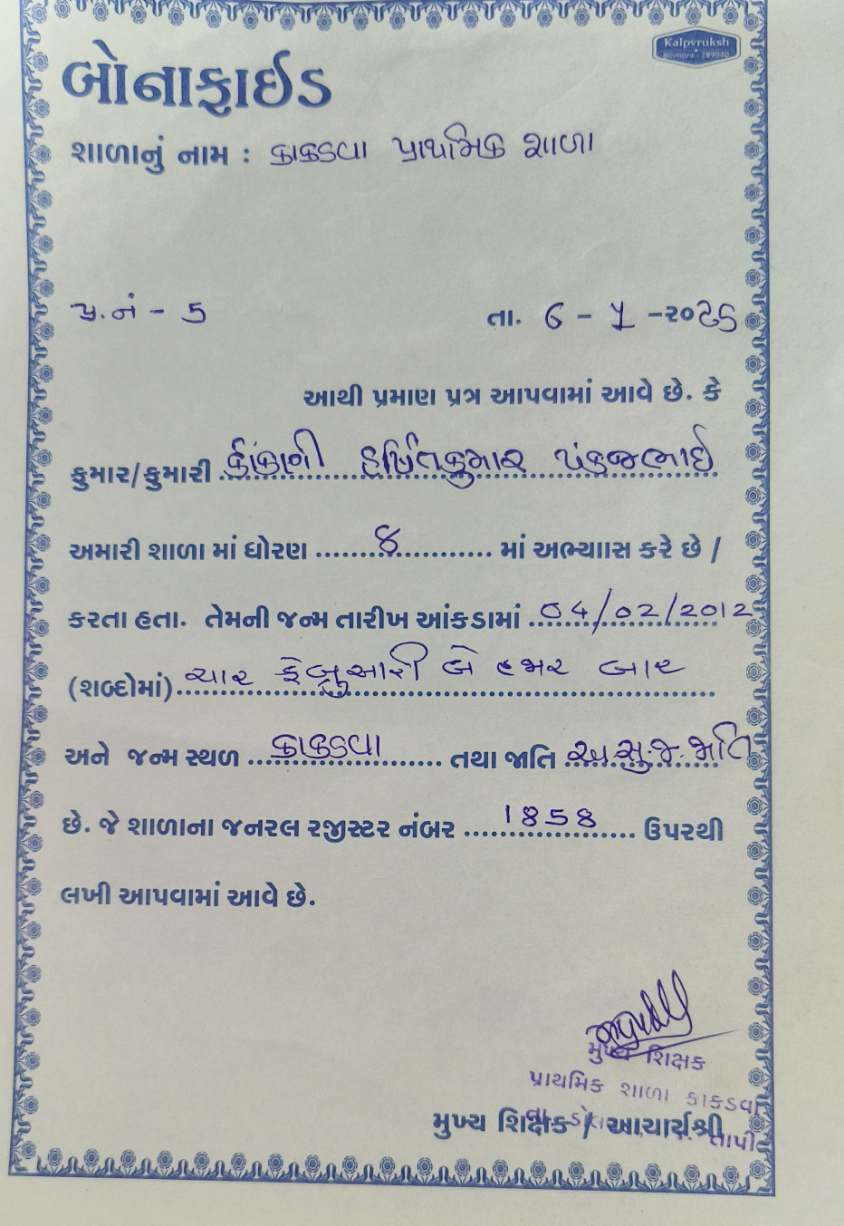 Kalpvruksh
બોનાફાઈડ
શાળાનું નામ : કાકડવા પ્રાથમિક શાળા
પ્ર.નં - 5
તા. 6 - 1 -૨૦૨૬
આથી પ્રમાણ પત્ર આપવામાં આવે છે. કે
કુમાર/કુમારી કોંકણી હર્ષિતકુમાર પંકજભાઈ
અમારી શાળા માં ધોરણ ......8...... માં અભ્યાસ કરે છે /
કરતા હતા. તેમની જન્મ તારીખ આંકડામાં ..04/02/2012
(શબ્દોમાં) ચાર ફેબ્રુઆરી બે હજાર બાર
અને જન્મ સ્થળ ...કાકડવા... તથા જાતિ અ.સુ.જ.જાતિ
છે. જે શાળાના જનરલ રજીસ્ટર નંબર ....1858.... ઉપરથી
લખી આપવામાં આવે છે.
મુખ્ય શિક્ષક
પ્રાથમિક શાળા કાકડવા
તાપી
મુખ્ય શિક્ષક / આચાર્યશ્રી